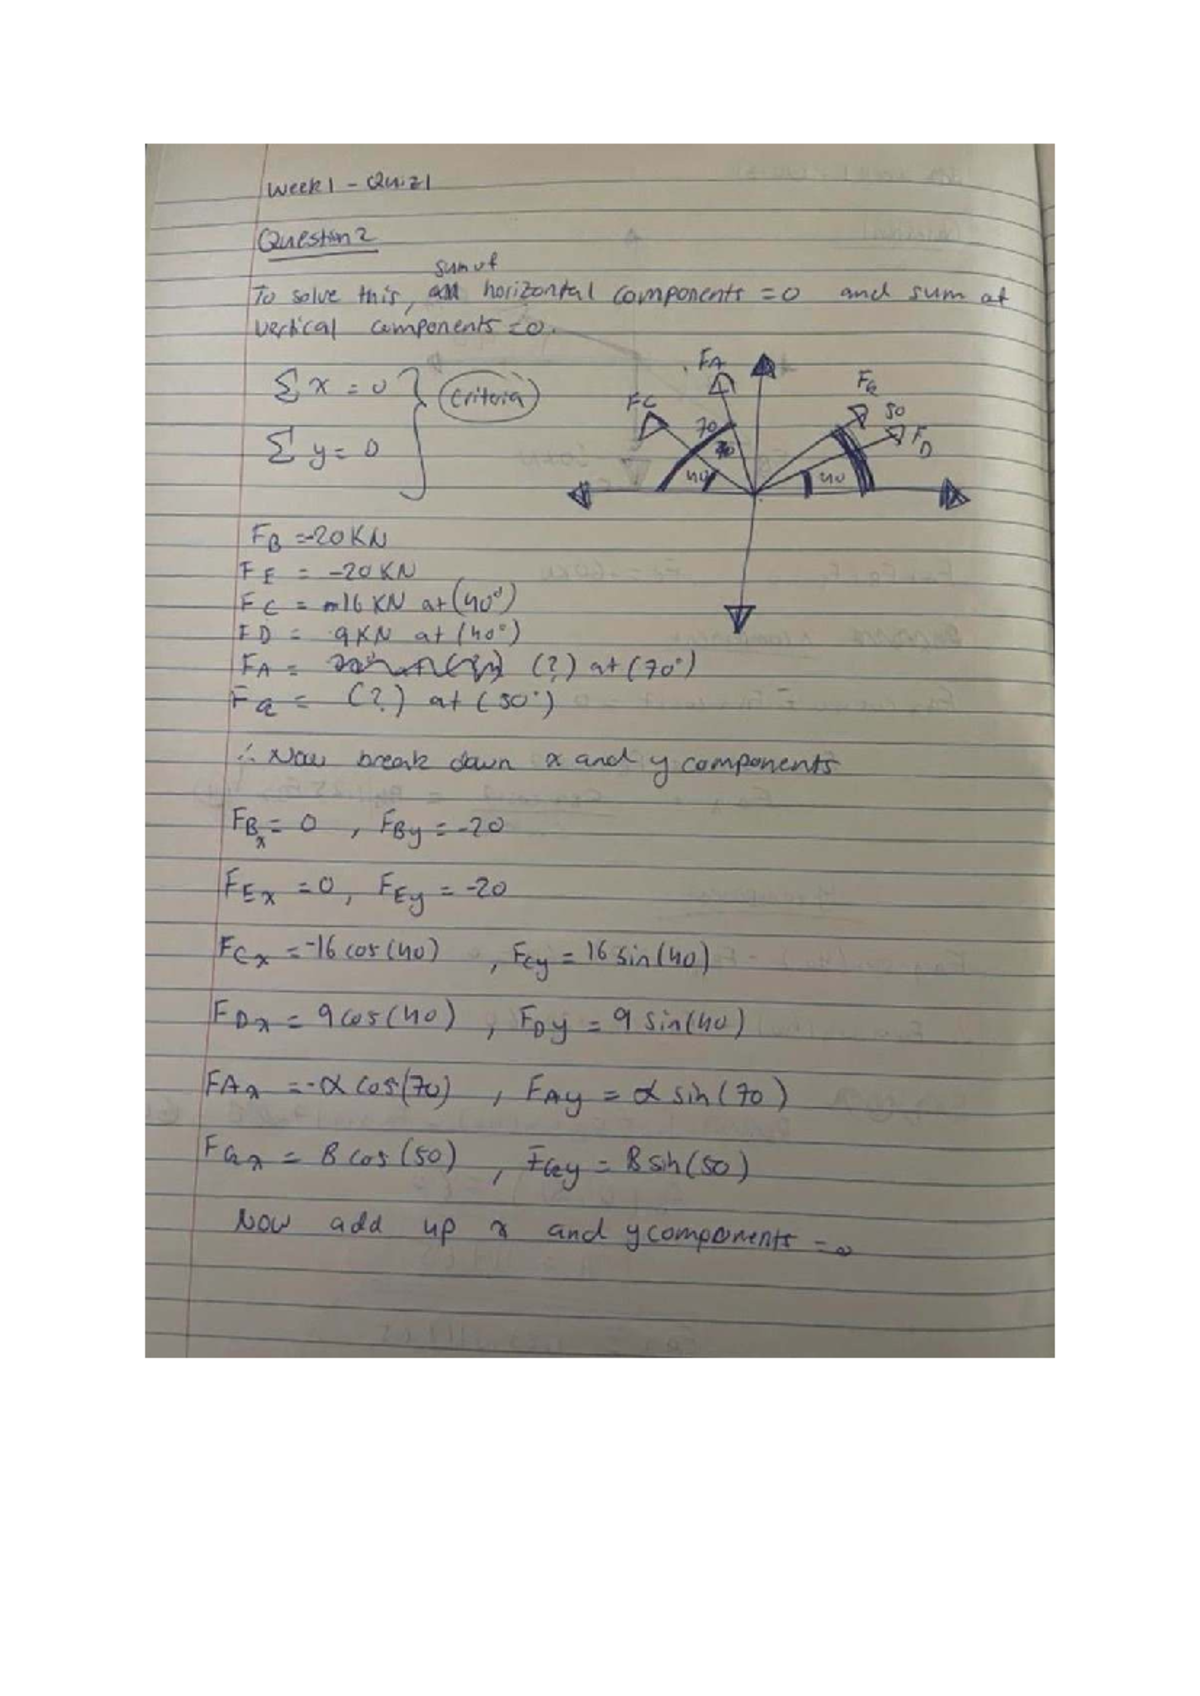 Week 1 - Quiz 1
Question 2
sum of
To solve this, horizontal components = 0 and sum of
vertical components = 0.
Σ x = 0
Σ y = 0
Criteria
FA
FC
70
40
FG
50
FD
40
FB = -20 KN
FE = -20 KN
FC = 16 KN at (40°)
FD = 9KN at (40°)
FA = (?) at (70°)
FG = (?) at (50°)
∴ Now break down x and y components
FBx = 0 , FBy = -20
FEx = 0, FEy = -20
FCx = -16 cos(40) , FCy = 16 sin(40)
FDx = 9 cos(40) , FDy = 9 sin(40)
FAx = -α cos(70) , FAy = α sin(70)
FGx = B cos(50) , FGy = B sin(50)
Now add up x and y components = 0